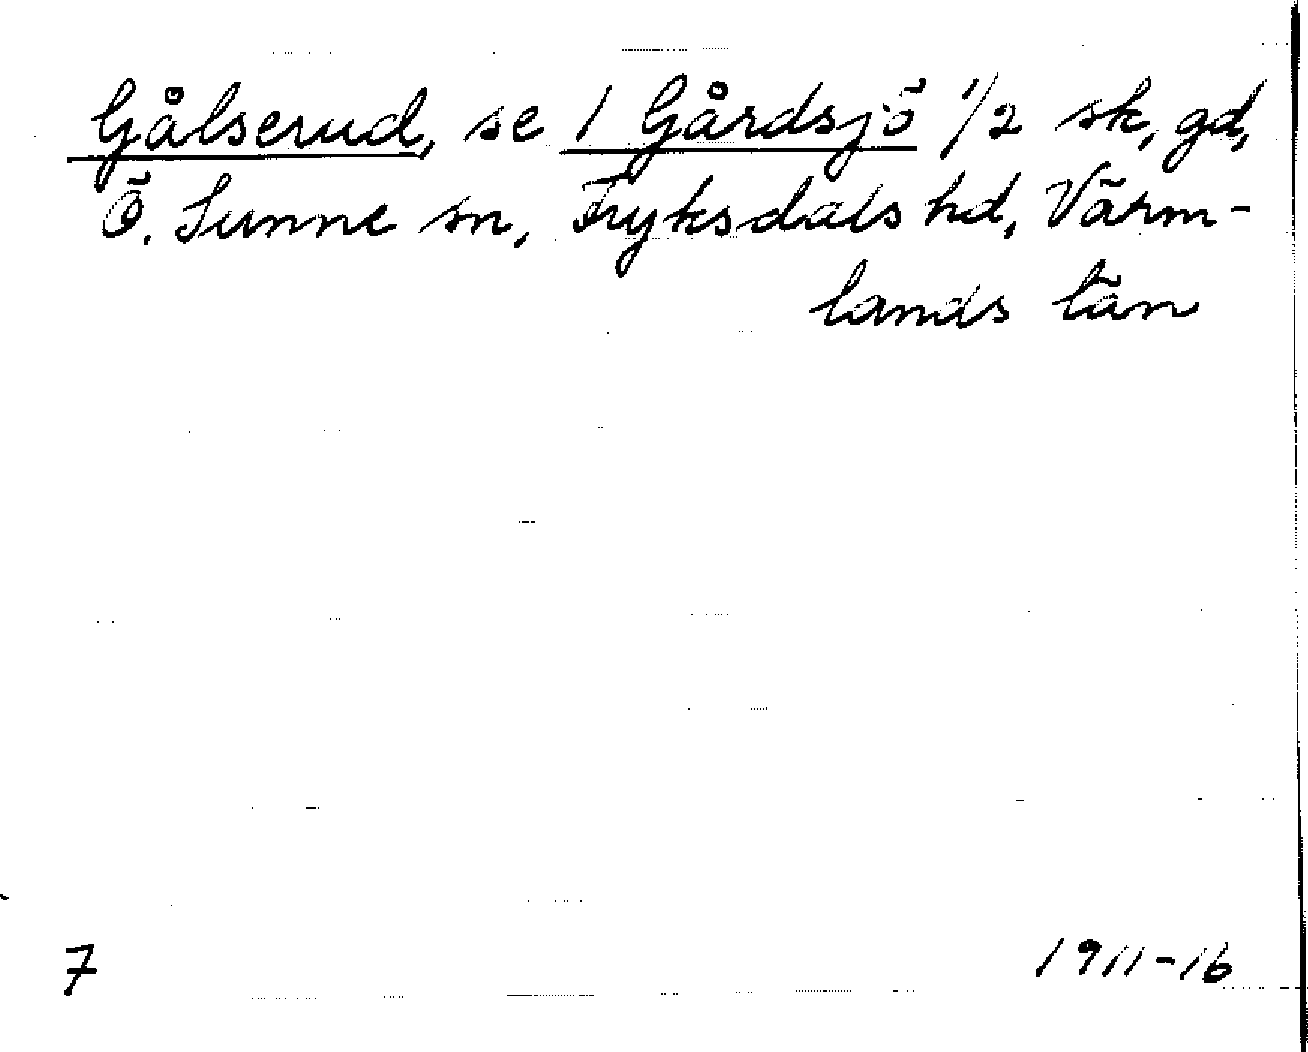 Gålserud, se 1 Gårdsjö 1/2 sk, gd,
Ö. Sunne sn, Fryksdals hd, Värm-
lands län
7
1911-16